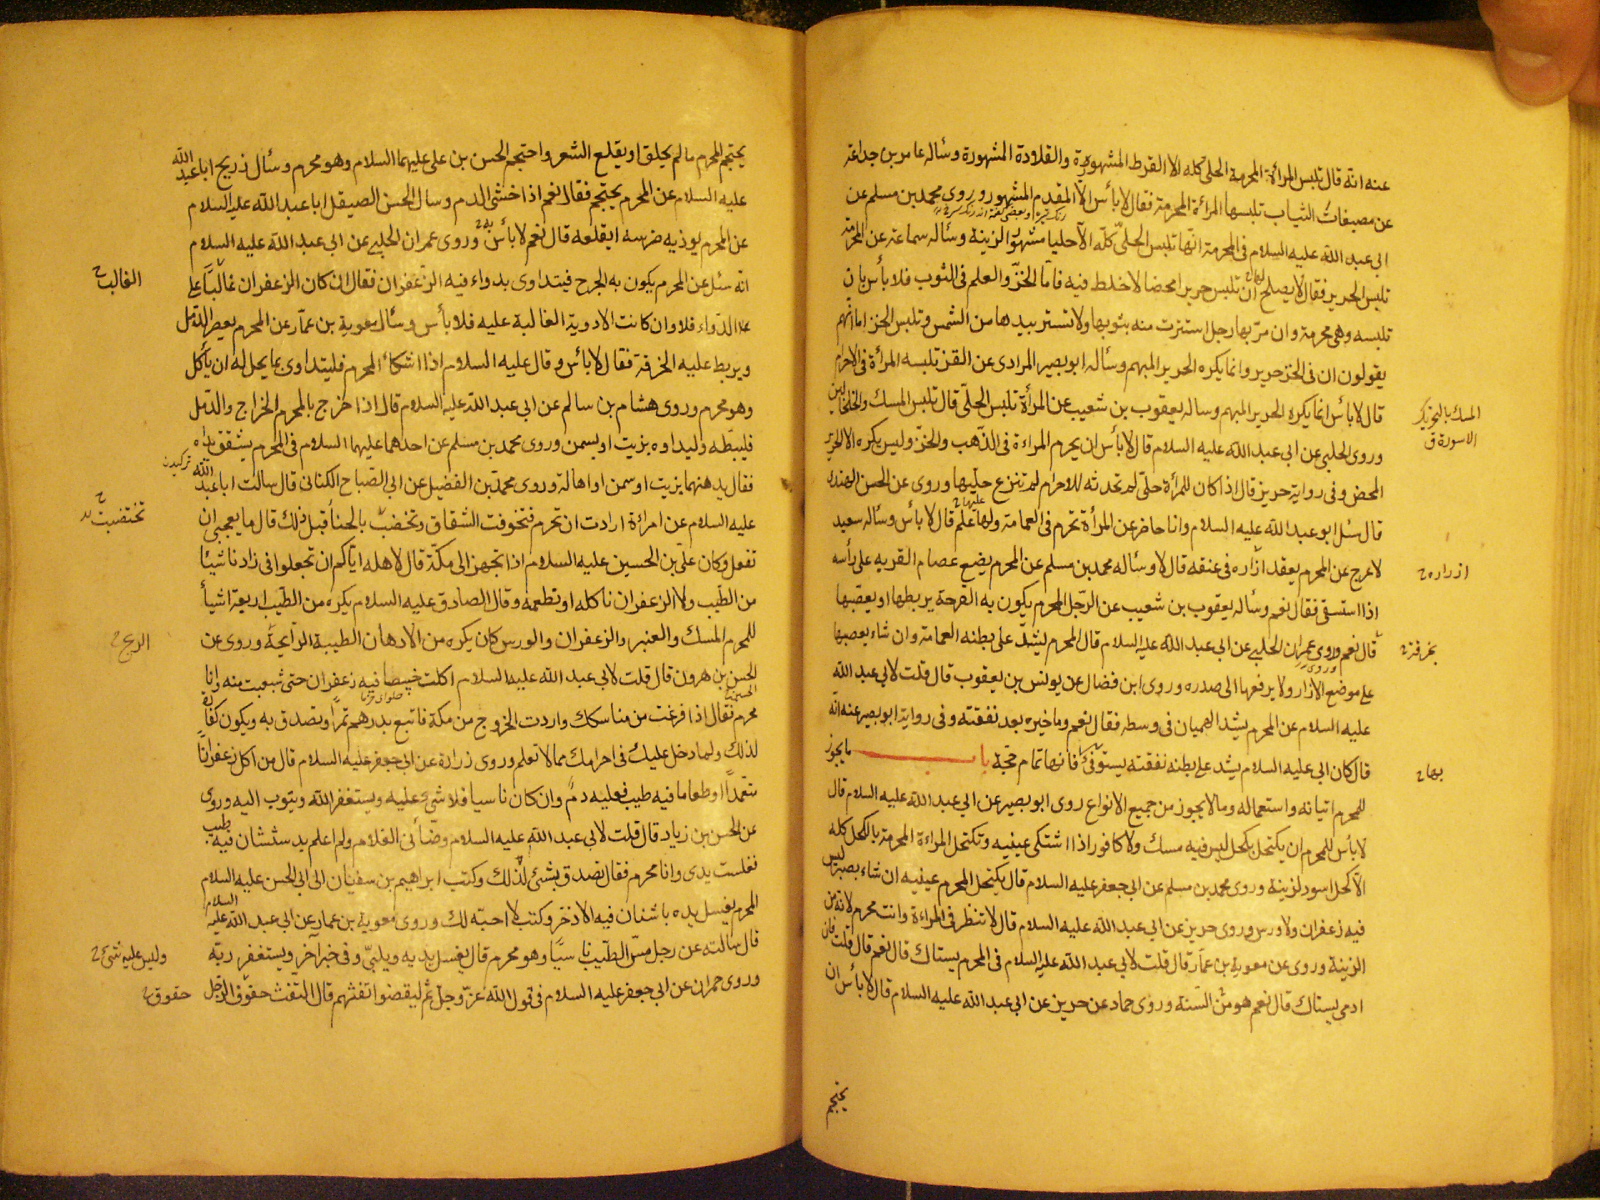 عنه انه قال تلبس المرأة المحرمة الحلى كله الا القرط المشهورة والقلادة المشهورة وسأله عامر بن جذاعة
عن مصبغات الثياب تلبسها المرأة المحرمة فقال لا بأس الا المقدم المشهور وروى محمد بن مسلم عن
ابى عبد الله عليه السلام فى المحرمة انها تلبس الحلى كله الا حليا مشهورا لزينة وسأله سماعة عن المحرمة
تلبس الحرير فقال لا يصلح ان تلبس حريرا محضا لا خلط فيه فاما الخز والعلم فى الثوب فلا بأس بان
تلبسه وهى محرمة وان مر بها رجل استترت منه بثوبها ولا تستتر بيدها من الشمس وتلبس الخز اما انهم
يقولون ان فى الخز حرير وانما يكره الحرير المبهم وسأله ابو بصير المرادى عن القز تلبسه المرأة فى الاحرام
قال لا بأس انما يكره الحرير المبهم وساله يعقوب بن شعيب عن المرأة تلبس الحلى قال تلبس المسك والخلخالين
المسك بالتحريك
الاسورة ق
وروى الحلبى عن ابى عبد الله عليه السلام قال لا بأس ان يحرم المراءة فى الذهب والخز وليس يكره الا الحرير
المحض وفى رواية حريز قال اذا كان للمرأة حلى لم تحدثه للاحرام لم تنزع حليها وروى عن الحسن
قال سئل ابو عبد الله عليه السلام وانا حاضر عن المرأة تحرم فى العمامة ولها علم قال لا بأس وسأله سعيد
لاعرج عن المحرم يعقد ازاره فى عنقه قال لا وسأله محمد بن مسلم عن المحرم يضع عصام القربه على رأسه
ازراره
اذا استسقى فقال نعم وسأله يعقوب بن شعيب عن الرجل المحرم يكون به القرحة يربطها او يعصبها
بخرقة
قال نعم وروى عمران الحلبى عن ابى عبد الله عليه السلام قال المحرم يشد على بطنه العمامة وان شاء يعصبها
على موضع الازار ولا يرفعها الى صدره وروى ابن فضال عن يونس بن يعقوب قال قلت لابى عبد الله
عليه السلام عن المحرم يشد الهميان فى وسطه فقال نعم وما خيره بعد نفقته وفى رواية ابو بصير عنه انه
قال كان ابى عليه السلام يشد على بطنه نفقته يستوثق فانها تمام حجة باب ما يجوز
بها
للمحرم اتيانه واستعماله وما لا يجوز من جميع الانواع روى ابو بصير عن ابى عبد الله عليه السلام قال
لا بأس للمحرم ان يكتحل بكحل ليس فيه مسك ولا كافور اذا اشتكى عينيه وتكتحل المراءة المحرمة بالكحل كله
الا كحل اسود لزينة وروى محمد بن مسلم عن ابى جعفر عليه السلام قال يكتحل المحرم عينيه ان شاء بصبر ليس
فيه زعفران ولا ورس وروى حريز عن ابى عبد الله عليه السلام قال لا تنظر فى المراءة وانت محرم لانه من
الزينة وروى عن معوية بن عمار قال قلت لابى عبد الله عليه السلام فى المحرم يستاك قال نعم قال قلت فان
ادمى يستاك قال نعم هو من السنة وروى حماد عن حريز عن ابى عبد الله عليه السلام قال لا بأس ان
يحتجم
يحتجم المحرم ما لم يحلق او يقلع الشعر واحتجم الحسن بن على عليهما السلام وهو محرم وسأل ذريح ابا عبد الله
عليه السلام عن المحرم يحتجم فقال نعم اذا خشى الدم وسال الحسن الصيقل ابا عبد الله عليه السلام
عن المحرم يوذيه ضرسه ايقلعه قال نعم لا بأس به وروى عمران الحلبى عن ابى عبد الله عليه السلام
انه سئل عن المحرم يكون به الجرح فيتداوى بدواء فيه الزعفران فقال ان كان الزعفران غالبا على
الغالب
الدواء فلا وان كانت الادوية الغالبة عليه فلا بأس وسأل معوية بن عمار عن المحرم يعصر الدمل
ويربط عليه الخرقة فقال لا بأس وقال عليه السلام اذا اشتكى المحرم فليتداوى بما يحل له ان يأكل
وهو محرم وروى هشام بن سالم عن ابى عبد الله عليه السلام قال اذا خرج بالمحرم الخراج والدمل
فليبطه وليداوه بزيت او بسمن وروى محمد بن مسلم عن احدهما عليهما السلام فى المحرم يشقق يداه
فقال يدهنهما بزيت او سمن او اهالة وروى محمد بن الفضيل عن ابى الصباح الكنانى قال سالت ابا عبد الله
عليه السلام عن امراءة ارادت ان تحرم فتخوفت الشقاق وتخضب بالحناء قبل ذلك قال ما يعجبنى ان
تختضب
تفعل وكان على بن الحسين عليه السلام اذا تجهز الى مكة قال لاهله اياكم ان تجعلوا فى زادنا شيئا
من الطيب ولا الزعفران ناكله او نطعمه وقال الصادق عليه السلام يكره من الطيب اربعة اشياء
للمحرم المسك والعنبر والزعفران والورس كان يكره من الادهان الطيبة الرايحة وروى عن
الريح
الحسن بن هرون قال قلت لابى عبد الله عليه السلام اكلت خبيصا فيه زعفران حتى شبعت منه وانا
محرم فقال اذا فرغت من مناسكك واردت الخروج من مكة فابتع بدرهم تمرا وتصدق به ويكون كفارة
لذلك ولما دخل عليك فى احرامك مما لا تعلم وروى زرارة عن ابى جعفر عليه السلام قال من اكل زعفرانا
متعمدا او طعاما فيه طيب فعليه دم وان كان ناسيا فلا شىء عليه ويستغفر الله ويتوب اليه وروى
عن الحسن بن زياد قال قلت لابى عبد الله عليه السلام وضأنى الغلام ولم اعلم بدستشان فيه طيب
فغلست يدى وانا محرم فقال تصدق بشئ لذلك وكتب ابراهيم بن سفيان الى ابى الحسن عليه السلام
المحرم يغسل يده باشنان فيه الاذخر وكتب لا احبه لك وروى معوية بن عمار عن ابى عبد الله عليه السلام
قال سالته عن رجل مس الطيب ناسيا وهو محرم قال يغسل يديه ويلبى وفى خبر آخر ويستغفر ربه
وليس عليه شئ
وروى حمران عن ابى جعفر عليه السلام فى قول الله عز وجل ثم ليقضوا تفثهم قال التفث حقوق الرجل
حقوق